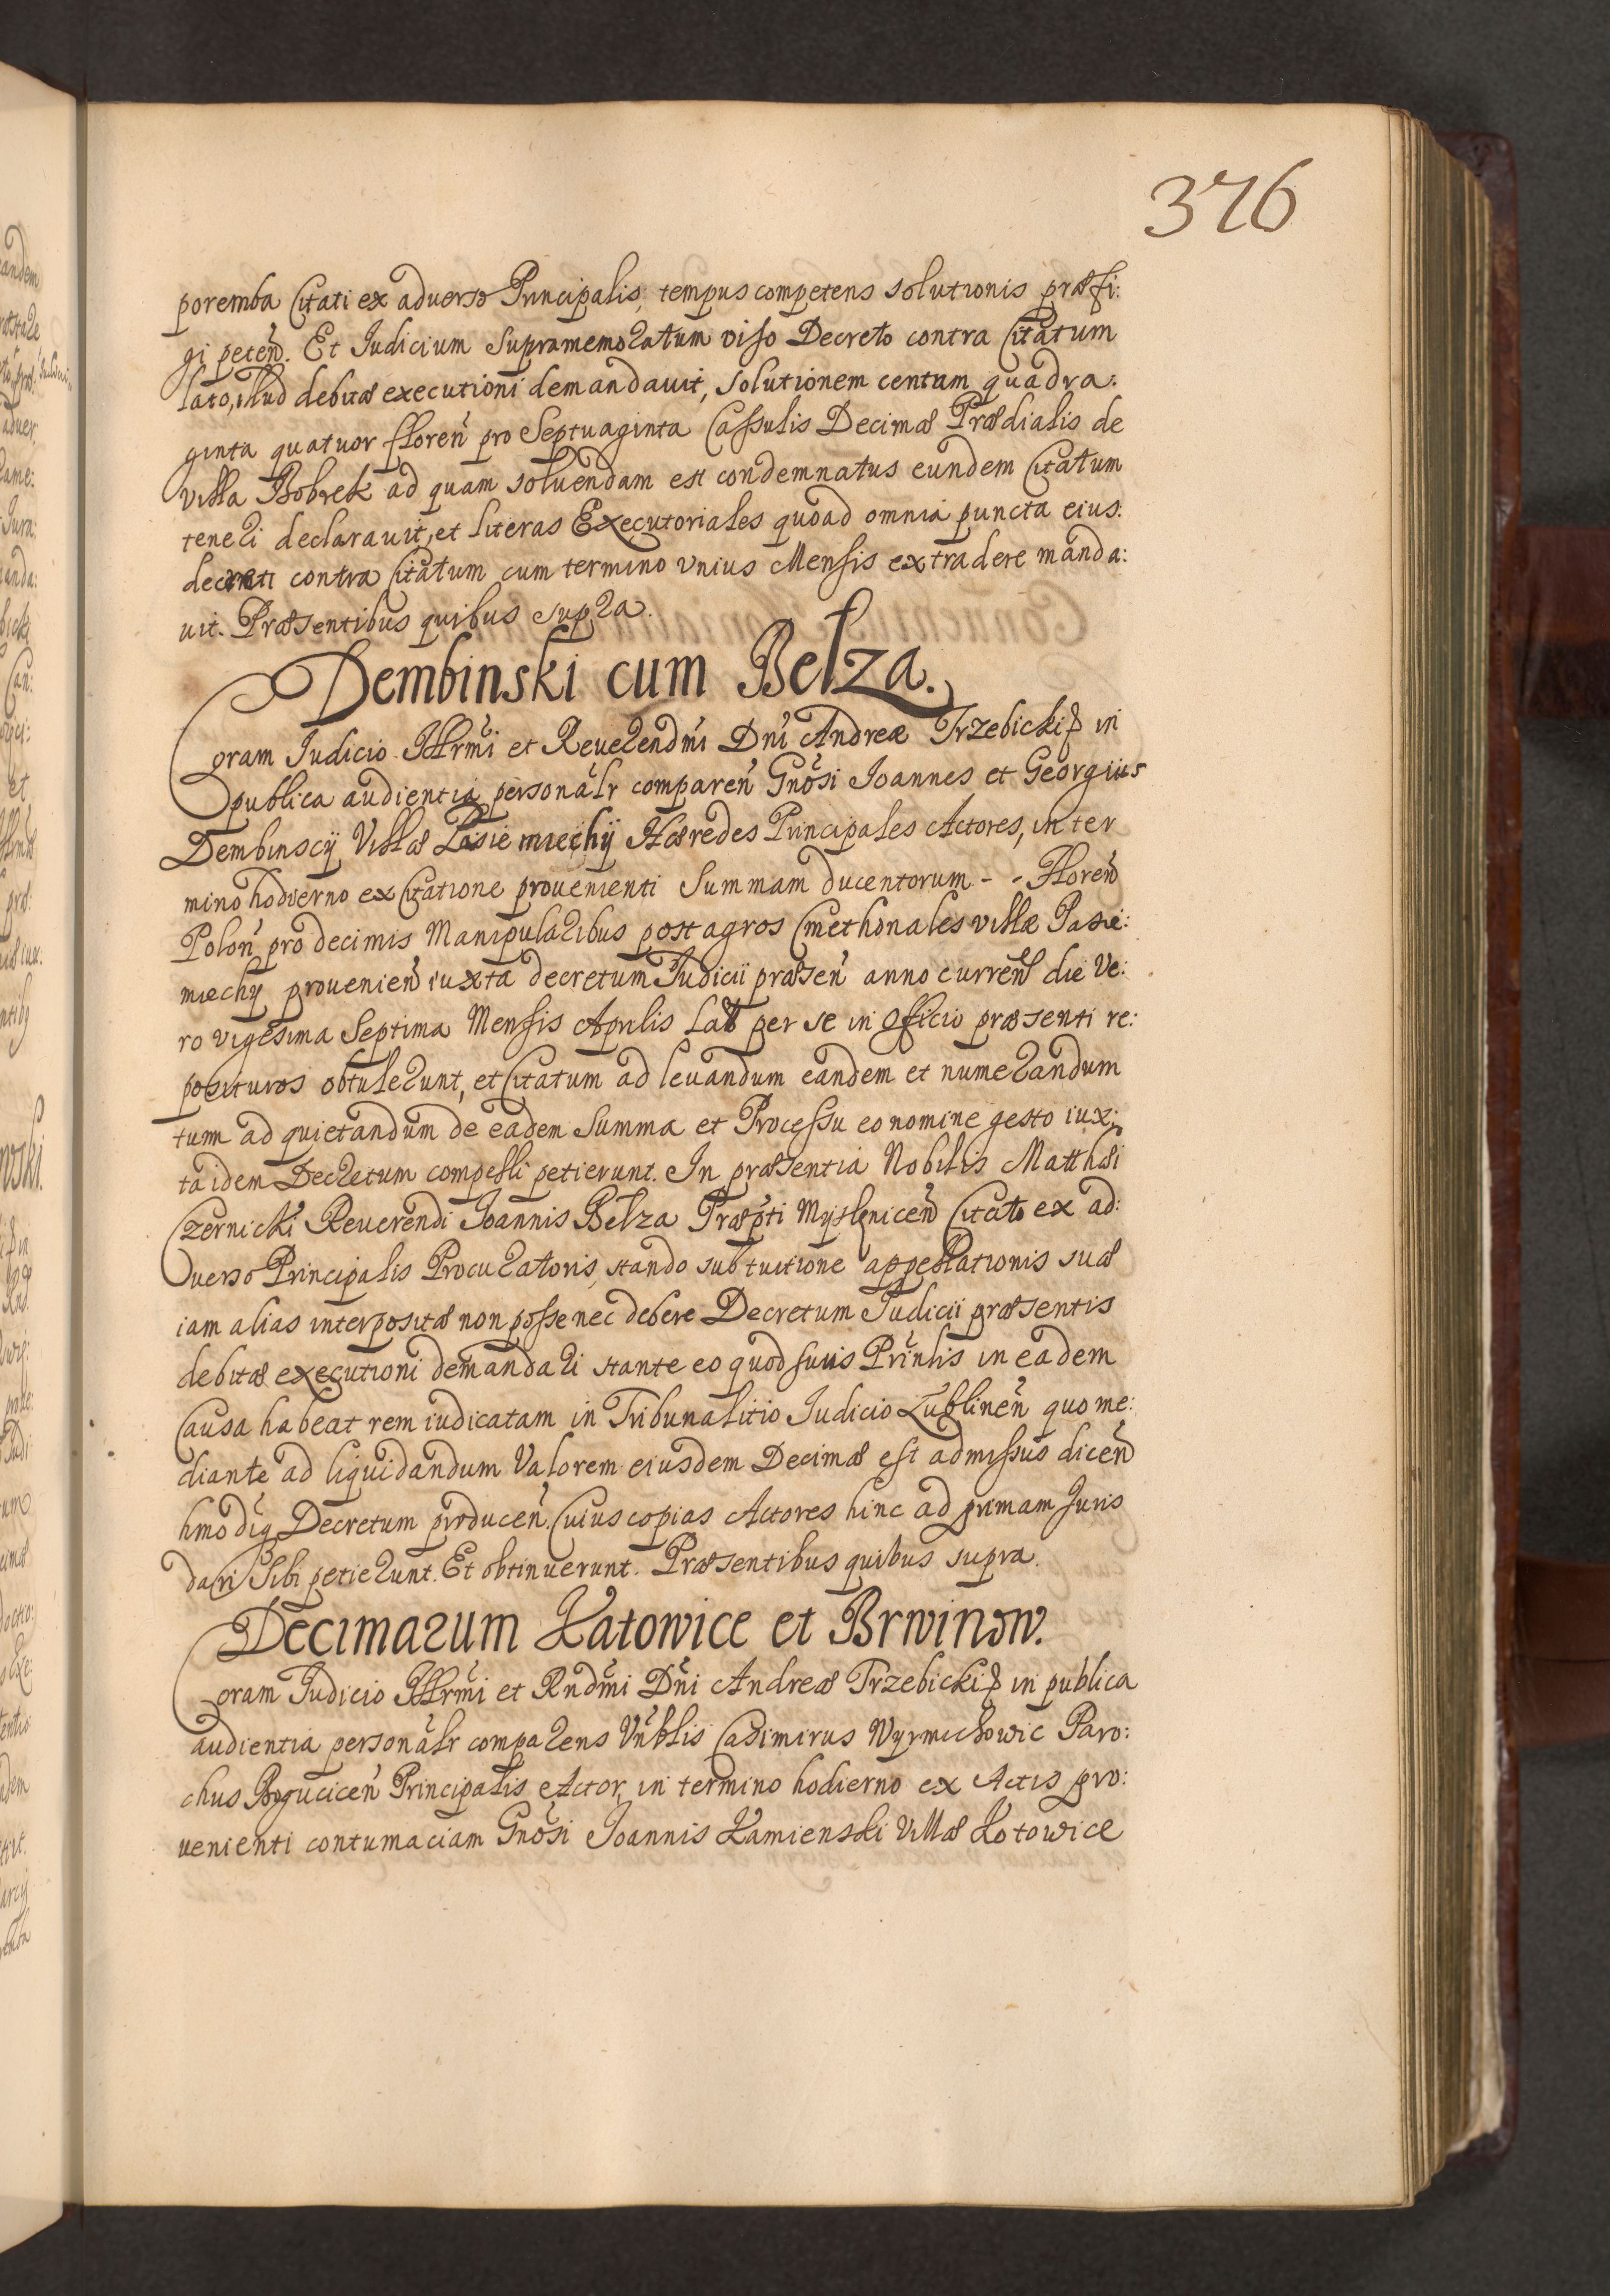 376
poremba Citati ex aduerso Principalis, tempus competens solutionis præfi:
gi peteñ. Et Iudicium supramemoratum viso Decreto contra Citatum
lato, illud debitæ executioni demandauit, solutionem centum quadra:
ginta quatuor floreñ pro Septuaginta Cassulis Decimæ Prædialis de
villa Bobrek ad quam soluendam est condemnatus eundem Citatum
teneri declarauit, et literas Executoriales quoad omnia puncta eius:
decreti contra Citatum cum termino vnius Mensis extradere manda:
uit. Præsentibus quibus supra.
Dembinski cum Belza.
Coram Iudicio Illrmi et Reuerendmi Dni Andreæ Trzebicki in
publica audientia personalr compareñ Gnosi Ioannes et Georgius
Dembinscÿ Villæ Pasiemiechÿ Hæredes Principales Actores, in ter
mino hodierno ex Citatione prouenienti Summam ducentorum - - Floreñ
Poloñ pro decimis Manipularibus post agros Cmethonales villæ Pasie:
miechÿ prouenieñ iuxta decretum Iudicii præseñ anno curreñ die Ve:
ro vigesima Septima Mensis Aprilis lat per se in Officio præsenti re:
posituros obtulerunt, et Citatum ad leuandum eandem et numerandum
tum ad quietandum de eadem Summa et Processu eo nomine gesto iux:
ta idem Decretum compelli petierunt. In præsentia Nobilis Matthæi
Czernicki Reuerendi Ioannis Belza Præpti Mysleniceñ Citato ex ad:
uerso Principalis Procuratoris, stando sub tuitione appellationis suæ
iam alias interpositæ non posse nec debere Decretum Iudicii præsentis
debitæ executioni demandari stante eo quod suus Prinlis in eadem
Causa habeat rem iudicatam in Tribunalitio Iudicio Lublineñ quo me:
diante ad liquidandum Valorem eiusdem Decimæ est admissus diceñ
hmodiq Decretum produceñ. Cuius copias Actores hinc ad primam Iuris
dari Sibi petierunt. Et obtinuerunt. Præsentibus quibus supra.
Decimarum Katowice et Brwinow.
Coram Iudicio Illrmi et Rndmi Dni Andreæ Trzebicki in publica
audientia personalr comparens Vnblis Casimirus Wyrmichowic Paro:
chus Boguciceñ Principalis Actor, in termino hodierno ex Actis pro:
uenienti contumaciam Gnosi Ioannis Kamienski Villæ Kotowice